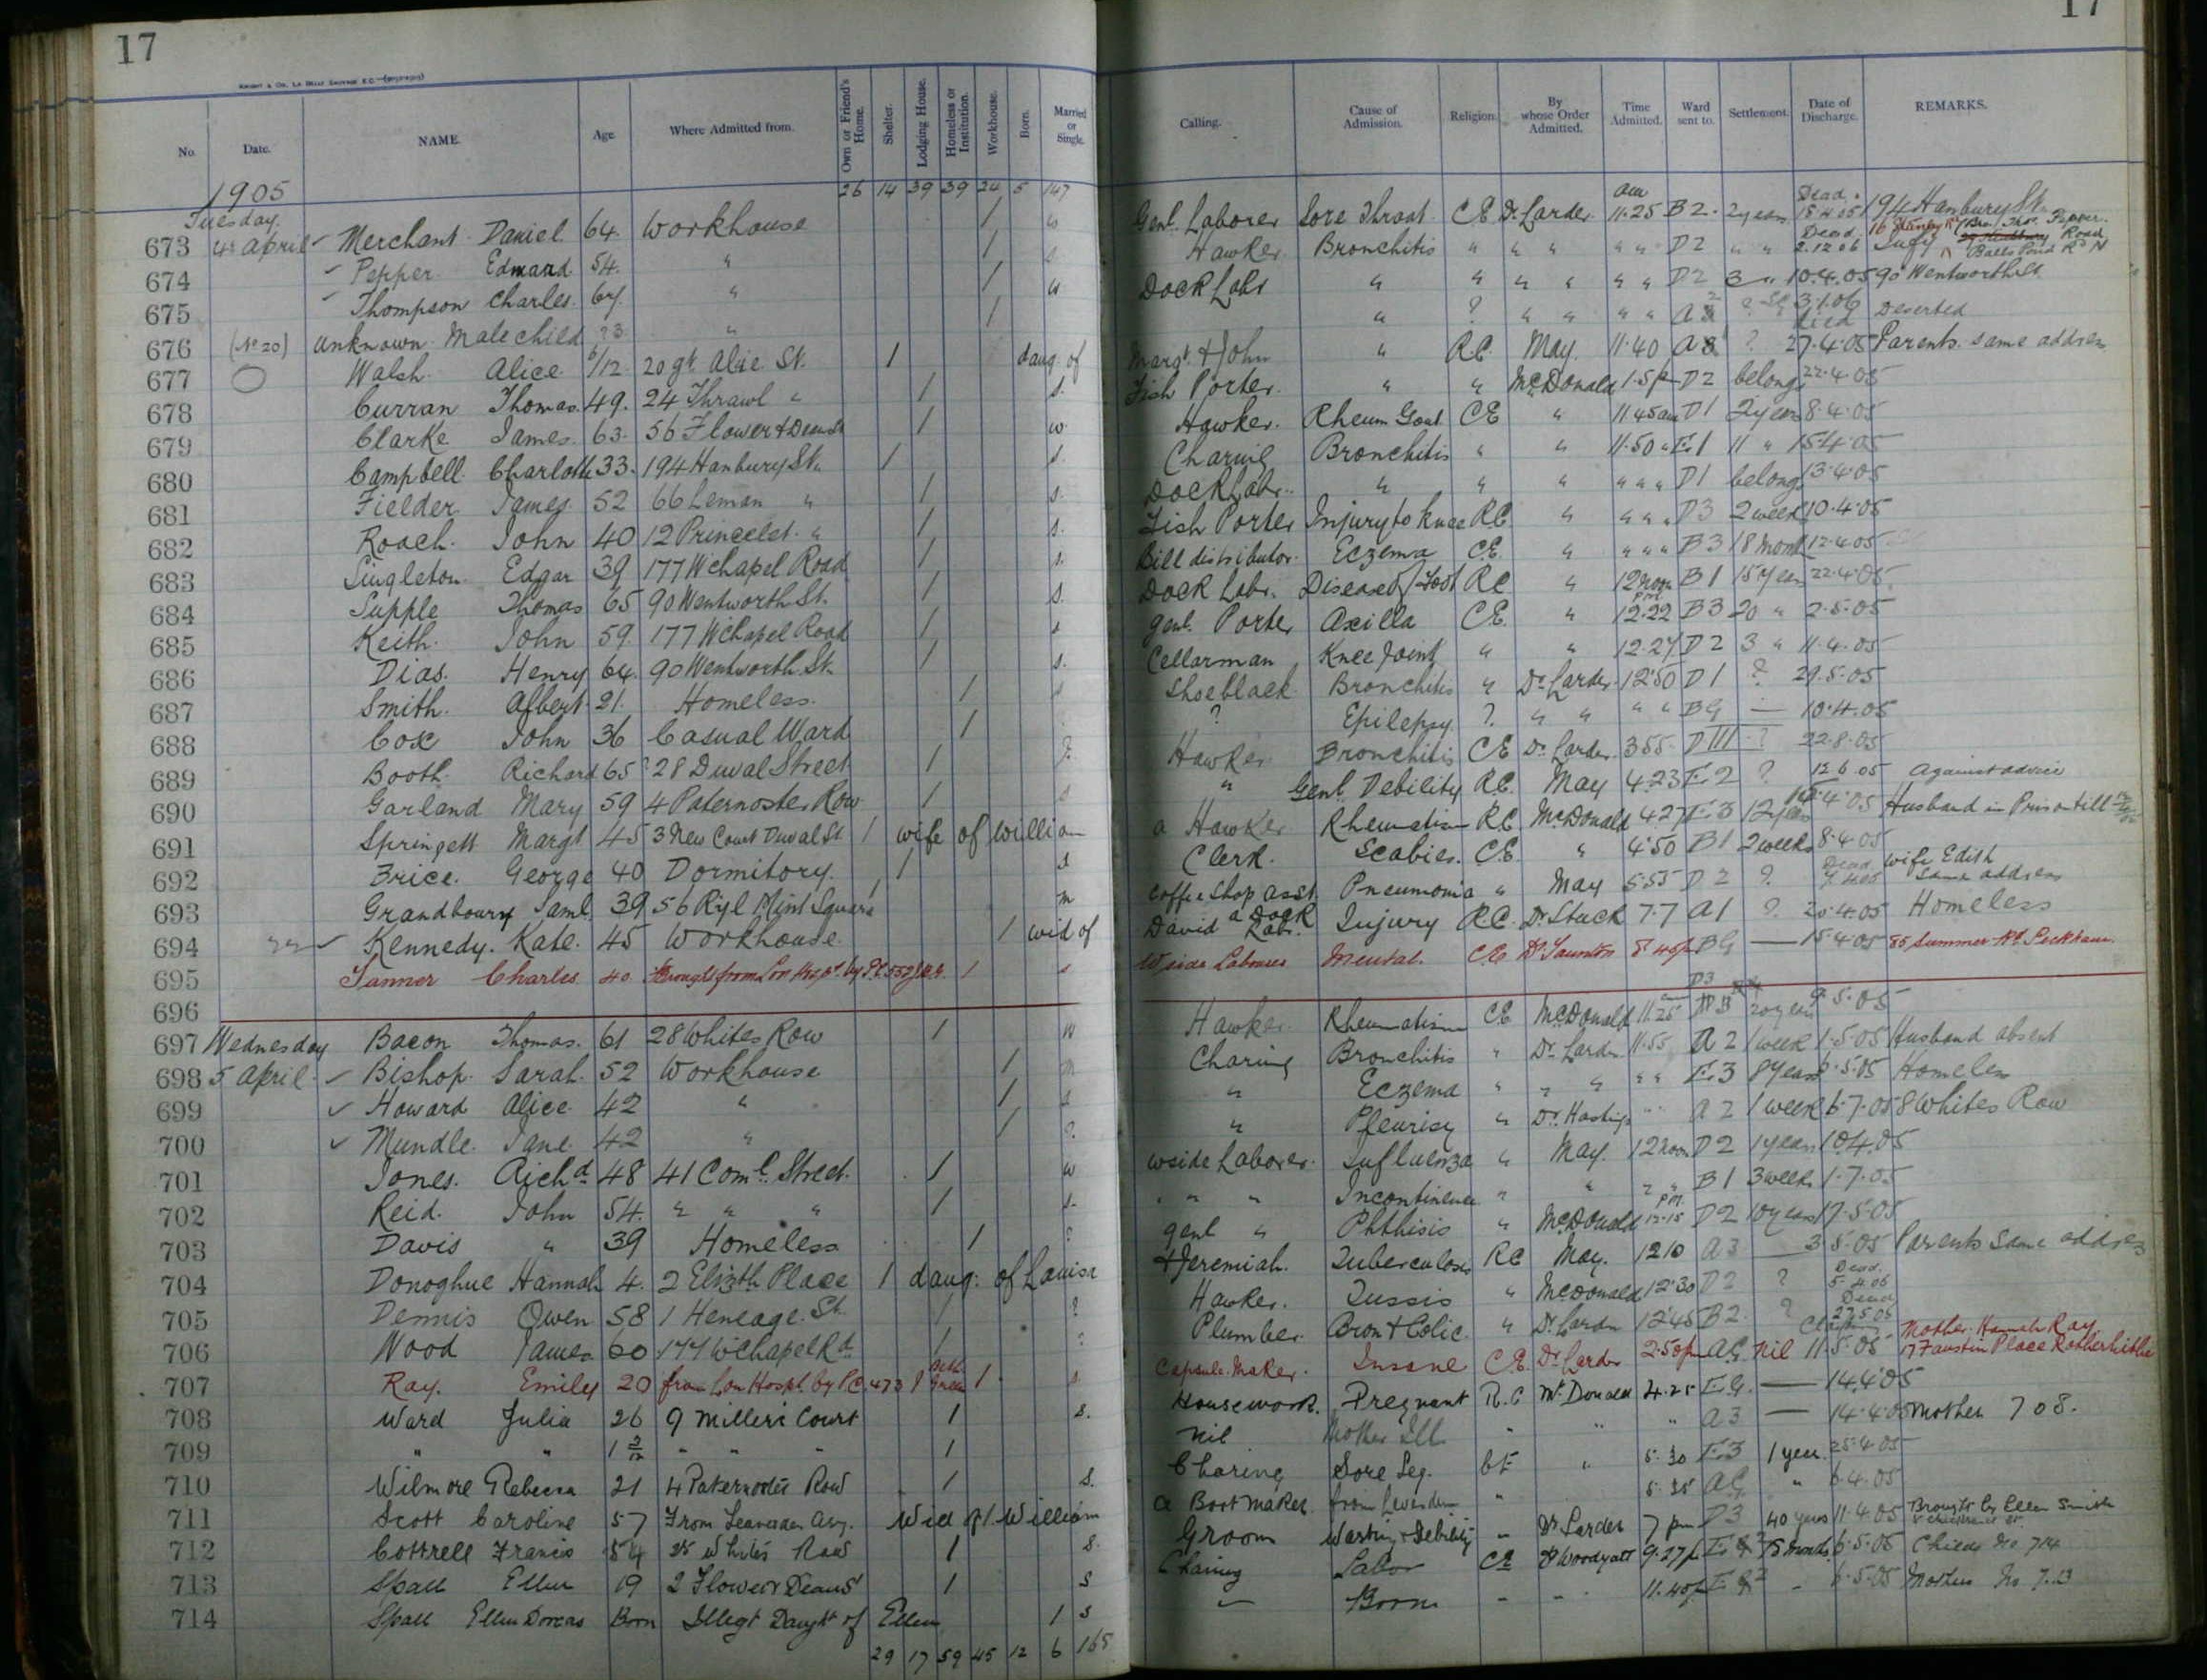 17
17
KNIGHT & CO., LA BELLE SAUVAGE E.C.
No. Date. NAME. Age Where Admitted from. Own or Friend's Home. Shelter. Lodging House. Homeless or Institution. Workhouse. Born. Married or Single. Calling. Cause of Admission. Religion. By whose Order Admitted. Time Admitted. Ward sent to. Settlement. Date of Discharge. REMARKS.
1905 26 14 39 39 24 5 147
Tuesday
673 4th April Merchant Daniel 64 Workhouse 1 w Genl. Laborer Sore Throat CE Dr Larder am 11.25 B2 2 years Dead 194 Hanbury St.
674 Pepper Edward 54 " 1 s Hawker Bronchitis " " " " " D2 " " Dead 2.12.06
675 Thompson Charles 67 " 1 w Dock Labr " " " " " " D2 3 " 10.4.05 90 Wentworth St.
676 (No 20) Unknown Male child ?3 " 1 " ? " " " " ? 3.1.06 Deserted
677 Walsh Alice 6/12 20 Gt. Alie St. 1 daug. of Margt. & John " R.C. May 11.40 ? died 27.4.05 Parents same address
678 Curran Thomas 49 24 Thrawl " 1 s. Fish Porter " " McDonald D2 belongs 22.4.05
679 Clarke James 63 56 Flower & Dean St 1 w. Hawker. Rheum Gout CE " 11.45 am D1 2 years 8.4.05
680 Campbell Charlotte 33 194 Hanbury St. 1 s. Charing Bronchitis " " 11.50 " E1 11 " 15.4.05
681 Fielder James 52 66 Leman " 1 s. Dock Labr. " " " " " " D1 belongs 13.4.05
682 Roach John 40 12 Princelet " 1 s. Fish Porter Injury to Knee RC " " " " D3 2 weeks 10.4.05
683 Singleton Edgar 39 177 W chapel Road 1 s. Bill distributor Eczema C.E. " " " " B3 18 mont 12.4.05
684 Supple Thomas 65 90 Wentworth St. 1 s. Dock Labr. Diseased Foot RC " 12 noon B1 15 years 22.4.05
685 Keith John 59 177 W chapel Road 1 s Genl. Porter Axilla C.E. " pm 12.22 B3 20 " 2.5.05
686 Dias. Henry 64 90 Wentworth St. 1 s. Cellarman Knee Joint " " 12.27 D2 3 " 11.4.05
687 Smith Albert 21 Homeless 1 s Shoeblack Bronchitis " Dr Larder 12.50 D1 ? 29.5.05
688 Cox John 36 Casual Ward 1 ? Epilepsy ? " " " " BG — 10.4.05
689 Booth Richard 65 28 Duval Street 1 ? Hawker Bronchitis CE Dr Larder 3.55 DIII ? 22.8.05
690 Garland Mary 59 4 Paternoster Row 1 s " Genl. Debility R.C. May 4.23 E2 ? 12.6.05 Against advice
691 Springett Margt 45 3 New Court Duval St. 1 wife of William a Hawker Rheumatism R.C McDonald 4.27 E3 12 years Husband in Prison till
692 Brice George 40 Dormitory 1 s Clerk Scabies C.E. " 4.50 B1 2 weeks 8.4.05
693 Saml. 39 56 Ryl Mint Square 1 m Coffee Shop Asst. Pneumonia " May 5.55 D2 ? Dead wife Edith same address
694 Kennedy Kate 45 Workhouse 1 wid of David a Dock Labr. Injury R.C. 7.7 A1 ? 20.4.05 Homeless
695 Tanner Charles 40 Brought from Lon Hospt. by P.C. 1 s W side Labourer Mental CE Dr. Taunton BG — 15.4.05 85 Summer Rd Peckham
696
697 Wednesday Bacon Thomas 61 28 Whites Row 1 w Hawker Rheumatism CE McDonald 11.25 D3 20 years 9.5.05
698 5 April Bishop Sarah 52 Workhouse 1 m Charing Bronchitis " Dr Larder 11.55 A2 1 week 1.5.05 Husband absent
699 Howard Alice 42 " 1 s " Eczema " " " " " E3 8 years 6.5.05 Homeless
700 Mundle Jane 42 " 1 ? " Pleurisy " Dr. Hastings A2 1 week 6.7.05 8 Whites Row
701 Jones Richd. 48 41 Coml. Street 1 w W side Laborer Influenza " May 12 noon D2 1 year 10.4.05
702 Reid John 54 " " " 1 s " " Incontinence " " " " B1 3 weeks 1.7.05
703 Davis " 39 Homeless 1 ? Genl " Phthisis " McDonald pm 12.15 D2 10 years 17.5.05
704 Donoghue Hannah 4 2 Elizth Place 1 daug. of Louisa & Jeremiah Tuberculosis RC May. 12 10 A3 — 3.5.05 Parents same address
705 Dennis Owen 58 1 Heneage St. 1 ? Hawker. Tussis " McDonald 12.30 D2 ? Dead
706 Wood James 60 177 W chapel Rd 1 ? Plumber Bron & Colic " Dr Larder 12.45 B2 ? Dead 27.5.05
707 Ray. Emily 20 from Lon Hospl. by P.C. 473 1 s Capsule Maker. Insane C.E. Dr Larder 2.50 pm AG nil 11.5.05 Mother Hannah Ray 17 Faustin Place Rotherhithe
708 Ward Julia 26 9 Millers Court 1 s. Housework. Pregnant R.C McDonald 4.25 E.G. — 14.4.05
709 " " 1 2/12 " " " 1 nil Mother Ill " " " A3 — 14.4.05 Mother 708.
710 Wilmore Rebecca 21 4 Paternoster Row 1 s. Charing Sore Leg. CE " 5.30 E3 1 year 25.4.05
711 Scott Caroline 57 From Leavesden Asy. Wid of William a Boot Maker from Leavesden " 5.35 AG " 6.4.05
712 Cottrell Francis 54 25 Whites Row 1 s. Groom Wasting & Debility " Dr Larder 7 pm D3 40 years 11.4.05 Brought by Ellen Smith
713 Spall Ellen 19 2 Flower & Deans 1 s Charing Labor CE Dr Woodyatt 9.27 p 6.5.05 Childs No 714
714 Spall Ellen Dorcas Born Illegt Daught of Ellen 1 s Born 11.40 p 6.5.05 Mothers No 713
29 17 59 45 12 6 165